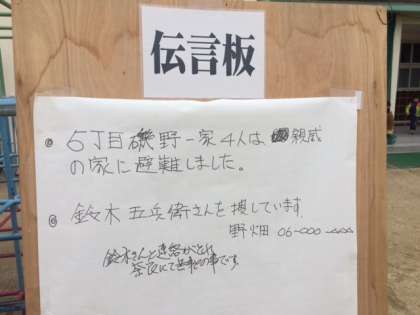 伝言板
◎ 5丁目磯野一家4人は親戚
の家に避難しました。
◎ 鈴木五兵衛さんを捜しています
野畑 06-000-0000
鈴木さんと連絡がとれ
奈良にて無事との事です。